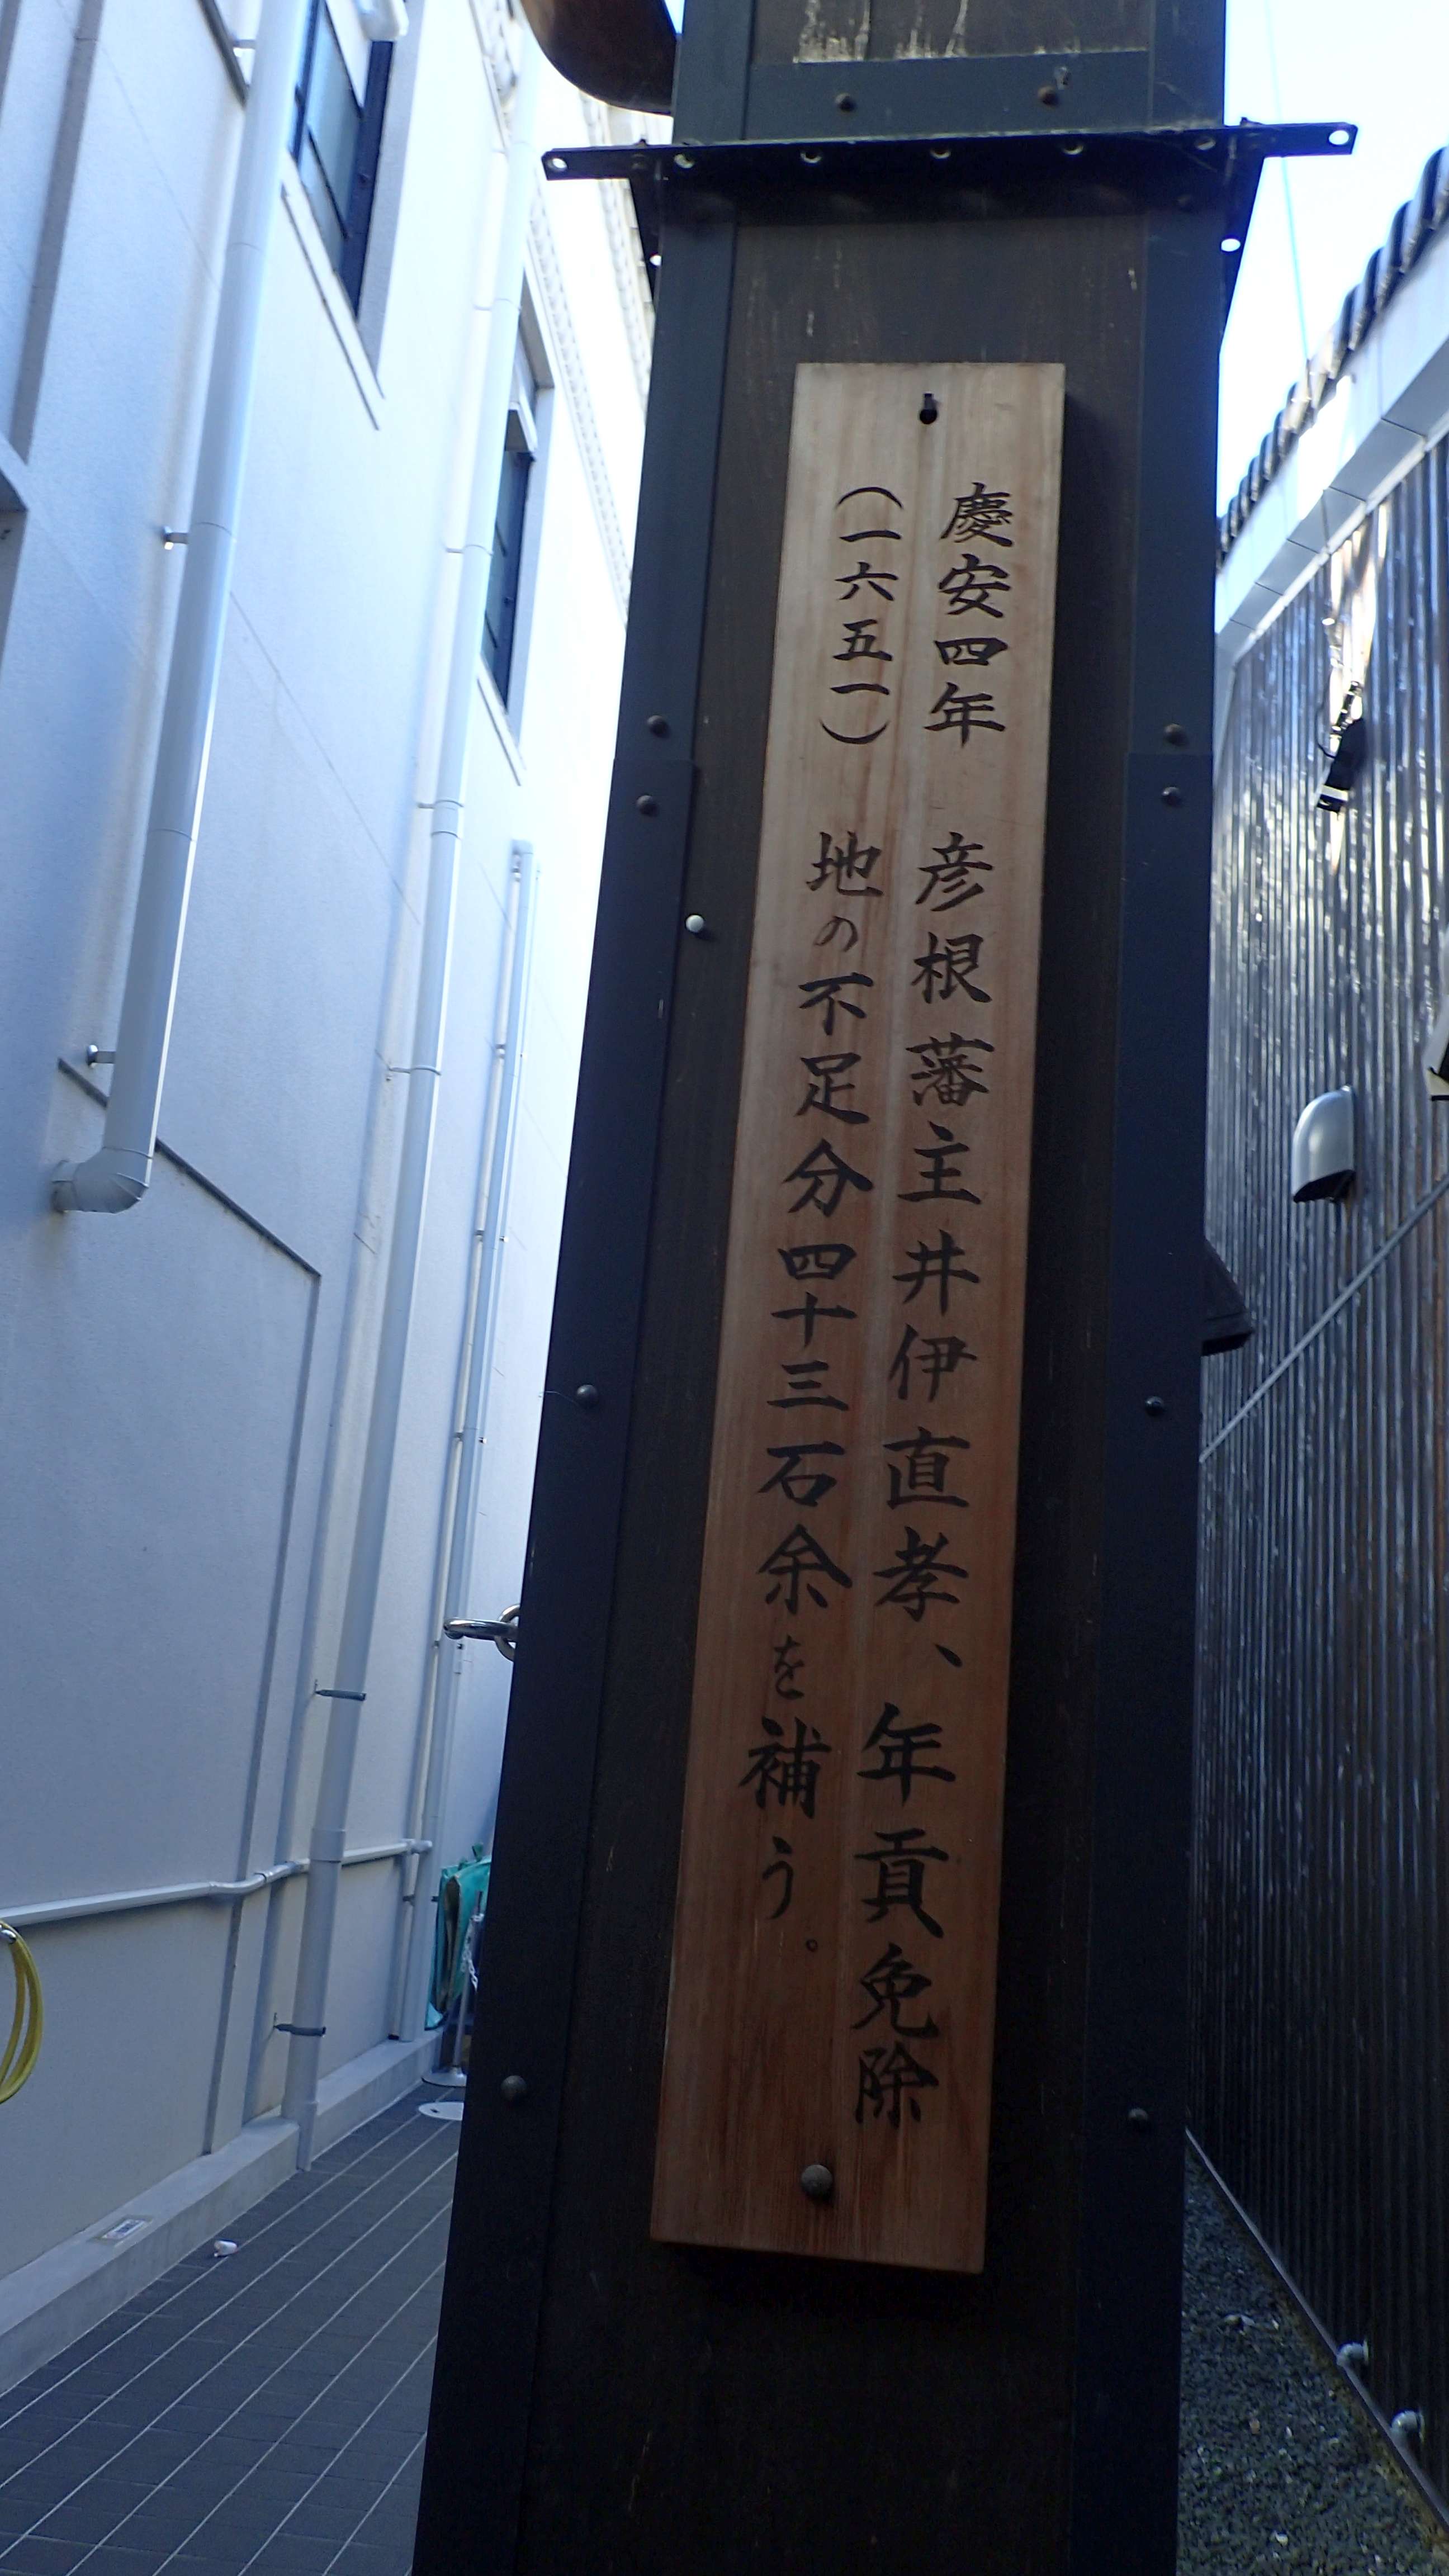 慶安四年 彦根藩主井伊直孝、年貢免除
(一六五一) 地の不足分四十三石余を補う。